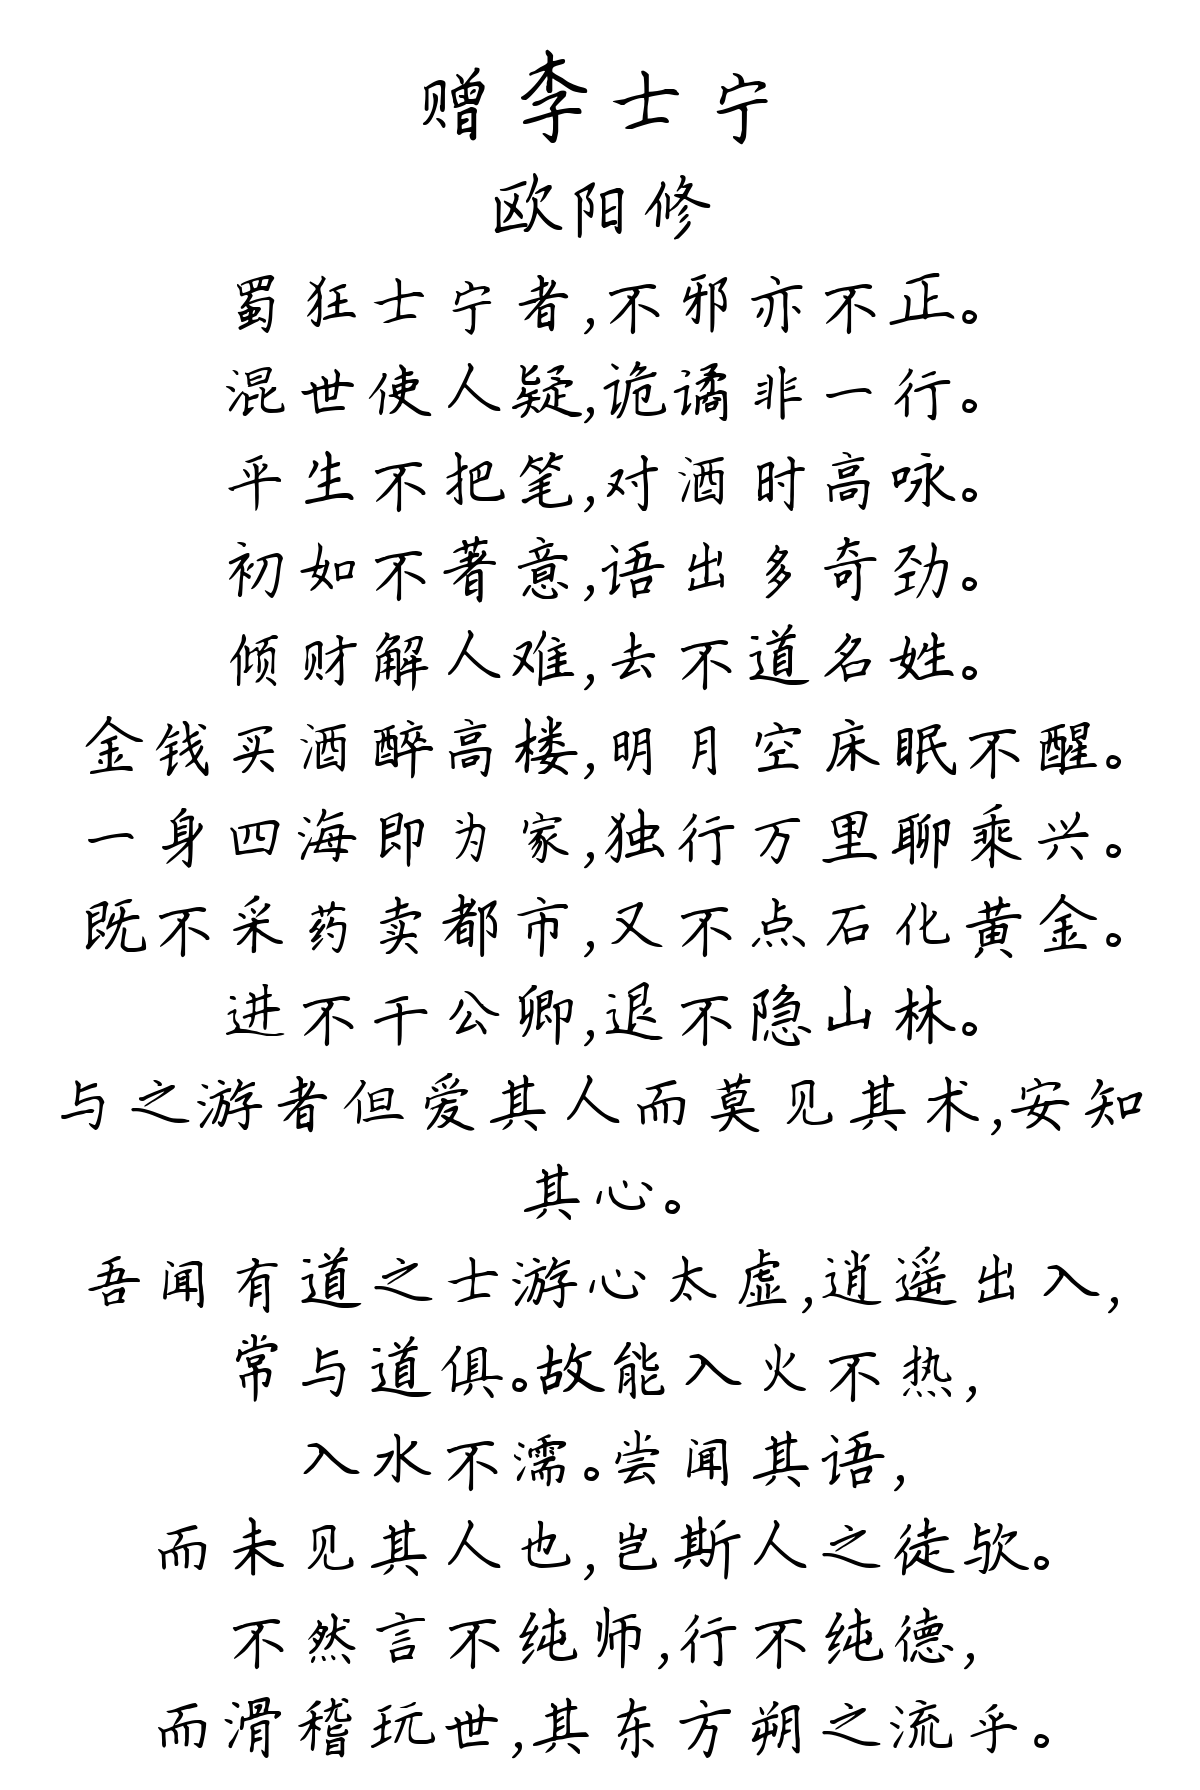 赠李士宁
欧阳修
蜀狂士宁者,不邪亦不正。
混世使人疑,诡谲非一行。
平生不把笔,对酒时高咏。
初如不著意,语出多奇劲。
倾财解人难,去不道名姓。
金钱买酒醉高楼,明月空床眠不醒。
一身四海即为家,独行万里聊乘兴。
既不采药卖都市,又不点石化黄金。
进不干公卿,退不隐山林。
与之游者但爱其人而莫见其术,安知
其心。
吾闻有道之士游心太虚,逍遥出入,
常与道俱。故能入火不热,
入水不濡。尝闻其语,
而未见其人也,岂斯人之徒欤。
不然言不纯师,行不纯德,
而滑稽玩世,其东方朔之流乎。